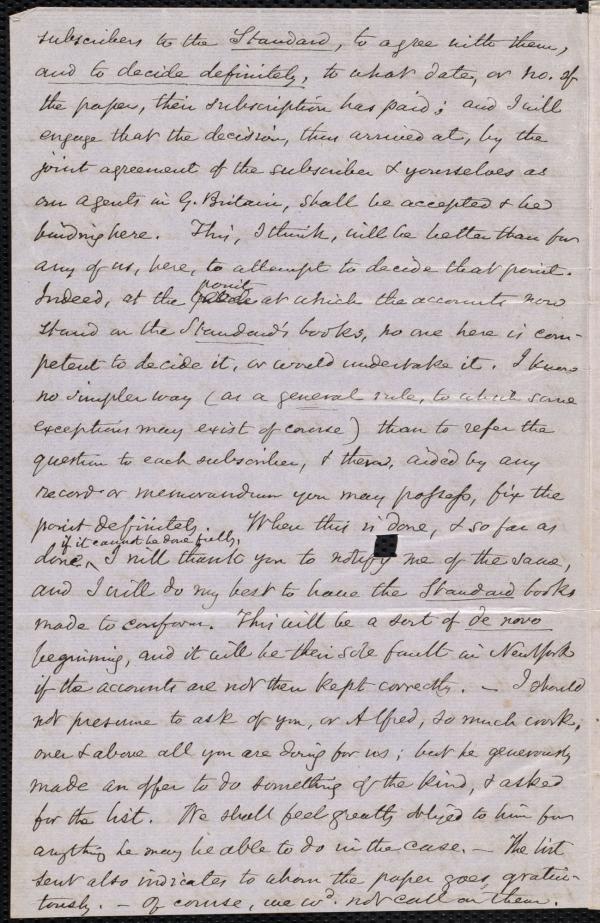 subscribers to the Standard, to agree with them,
and to decide definitely, to what date, or no. of
the paper, their subscription has paid; and I will
engage that the decision, thus arrived at, by the
joint agreement of the subscriber & yourselves as
our agents in G. Britain, shall be accepted & be
binding here. This, I think, will be better than for
any of us, here, to attempt to decide that point.
Indeed, at the point at which the accounts now
stand on the Standard's books, no one here is com-
petent to decide it, or would undertake it. I know
no simpler way (as a general rule, to which some
exceptions may exist of course) than to refer the
question to each subscriber, & there, aided by any
record or memorandum you may possess, fix the
point definitely. When this is done, & so far as
if it cannot be done fully,
done, I will thank you to notify me of the same,
and I will do my best to have the Standard books
made to conform. This will be a sort of de novo
beginning, and it will be their sole fault in New York
if the accounts are not then kept correctly. — I should
not presume to ask of you, or Alfred, so much work,
over & above all you are doing for us; but he generously
made an offer to do something of the kind, & asked
for the list. We shall feel greatly obliged to him for
anything he may be able to do in the case. — The list
sent also indicates to whom the paper goes gratui-
tously. — Of course, we wd. not call on them.